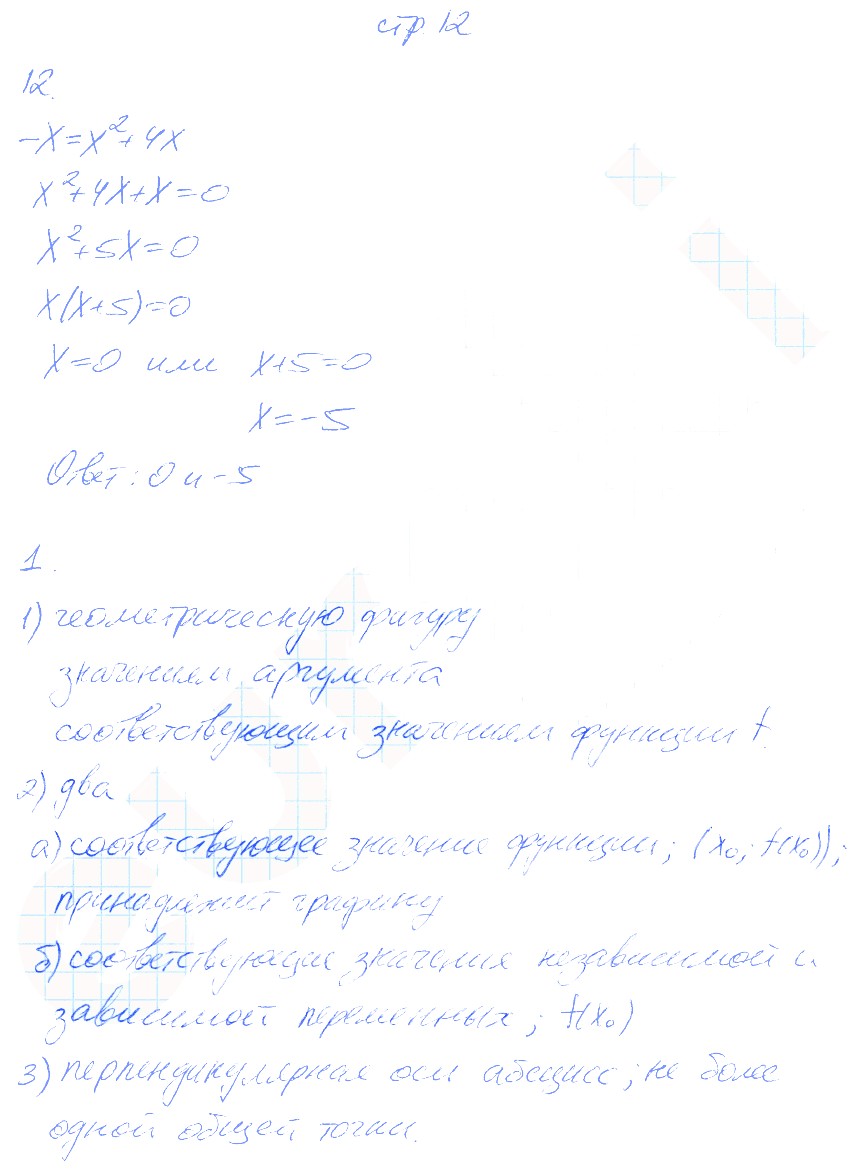 стр. 12
12.
-x=x²+4x
x²+4x+x=0
x²+5x=0
x(x+5)=0
x=0 или x+5=0
x=-5
Ответ: 0 и -5
1.
1) геометрическую фигуру
значениям аргумента
соответствующим значениям функции f.
2) два
а) соответствующее значение функции; (x₀; f(x₀));
принадлежит графику
б) соответствующие значения независимой и
зависимой переменных; f(x₀)
3) перпендикулярная оси абсцисс; не более
одной общей точки.